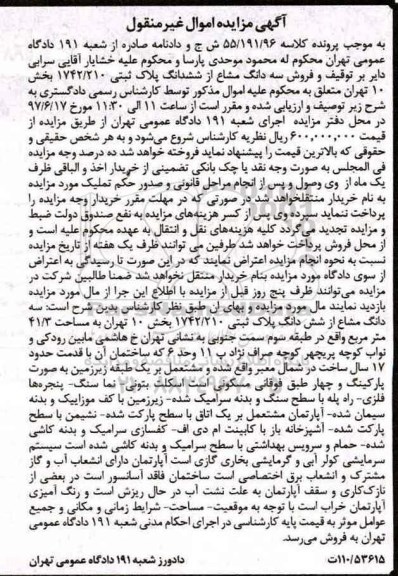 آگهی مزایده اموال غیر منقول
به موجب پرونده کلاسه ۵۵/۱۹۱/۹۶ ش ح و دادنامه صادره از شعبه ۱۹۱ دادگاه
عمومی تهران محکوم له محمود موحدی پارسا و محکوم علیه خشایار آقایی سرابی
دایر بر توقیف و فروش سه دانگ مشاع از ششدانگ پلاک ثبتی ۱۷۴۲/۲۱۰ بخش
۱۰ تهران متعلق به محکوم علیه اموال مذکور توسط کارشناس رسمی دادگستری به
شرح زیر توصیف و ارزیابی شده و مقرر است از ساعت ۱۱ الی ۱۱:۳۰ مورخ ۹۷/۶/۱۷
در محل دفتر مزایده اجرای شعبه ۱۹۱ دادگاه عمومی تهران از طریق مزایده از
قیمت ۶۰۰,۰۰۰,۰۰۰ ریال نظریه کارشناس شروع می‌شود و به هر شخص حقیقی و
حقوقی که بالاترین قیمت را پیشنهاد نماید فروخته خواهد شد ده درصد وجه مزایده
فی المجلس به صورت وجه نقد یا چک بانکی تضمینی از خریدار اخذ و الباقی ظرف
یک ماه از وی وصول و پس از انجام مراحل قانونی و صدور حکم تملیک مورد مزایده
به نام خریدار منتقلخواهد شد در صورتی که در مهلت مقرر خریدار وجه مزایده را
پرداخت ننماید سپرده وی پس از کسر هزینه‌های مزایده به نفع صندوق دولت ضبط
و مزایده تجدید می‌گردد کلیه هزینه‌های نقل و انتقال به عهده محکوم علیه است و
از محل فروش پرداخت خواهد شد طرفین می توانند ظرف یک هفته از تاریخ مزایده
نسبت به نحوه انجام مزایده اعتراض نمایند که در این صورت تا رسیدگی به اعتراض
از سوی دادگاه مورد مزایده بنام خریدار منتقل نخواهد شد ضمنا طالبین شرکت در
مزایده می‌توانند ظرف پنج روز قبل از مزایده با اطلاع این جرا از مال مورد مزایده
بازدید نمایند مال مورد مزایده و بهای آن طبق نظر کارشناس بدین طرح است: سه
دانگ مشاع از شش دانگ پلاک ثبتی ۱۷۴۲/۲۱۰ بخش ۱۰ تهران به مساحت ۴۱/۳
متر مربع واقع در طبقه سوم سمت جنوبی به نشانی تهران خ هاشمی مابین رودکی و
نواب کوچه پریچهر کوچه صراف نژاد پ ۱۱ وحد ۶ که ساختمان آن با قدمت حدود
۱۷ سال ساخت در شمال معبر واقع شده و مشتمل بر یک طبقه زیرزمین به صورت
پارکینگ و چهار طبق فوقانی مسکونی است اسکلت بتونی- نما سنگ- پنجره‌ها
فلزی- راه پله با سطح سنگ و بدنه سرامیک شده- زیرزمین با کف موزاییک و بدنه
سیمان شده- آپارتمان مشتمل بر یک اتاق با سطح پارکت شده- نشیمن با سطح
پارکت شده- آشپزخانه باز با کابینت ام دی اف- کفسازی سرامیک و بدنه کاشی
شده- حمام و سرویس بهداشتی با سطح سرامیک و بدنه کاشی شده است سیستم
سرمایشی کولر آبی و گرمایشی بخاری گازی است آپارتمان دارای انشعاب آب و گاز
مشترک و انشعاب برق اختصاصی است ساختمان فاقد آسانسور است در بعضی از
نازک‌کاری و سقف آپارتمان به علت نشت آب در حال ریزش است و رنگ آمیزی
آپارتمان خراب است با توجه به موقعیت- مساحت- شرایط زمانی و مکانی و جمیع
عوامل موثر به قیمت پایه کارشناسی در اجرای احکام مدنی شعبه ۱۹۱ دادگاه عمومی
تهران به فروش می‌رسد.
۱۱۰/۵۳۶۱۵ت
دادورز شعبه ۱۹۱ دادگاه عمومی تهران